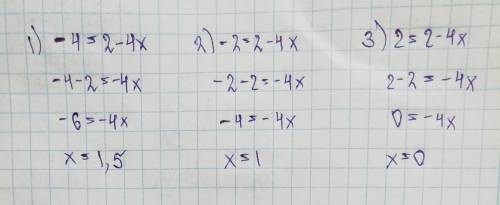 1) -4=2-4x
-4-2=-4x
-6=-4x
x=1,5
2) -2=2-4x
-2-2=-4x
-4=-4x
x=1
3) 2=2-4x
2-2=-4x
0=-4x
x=0